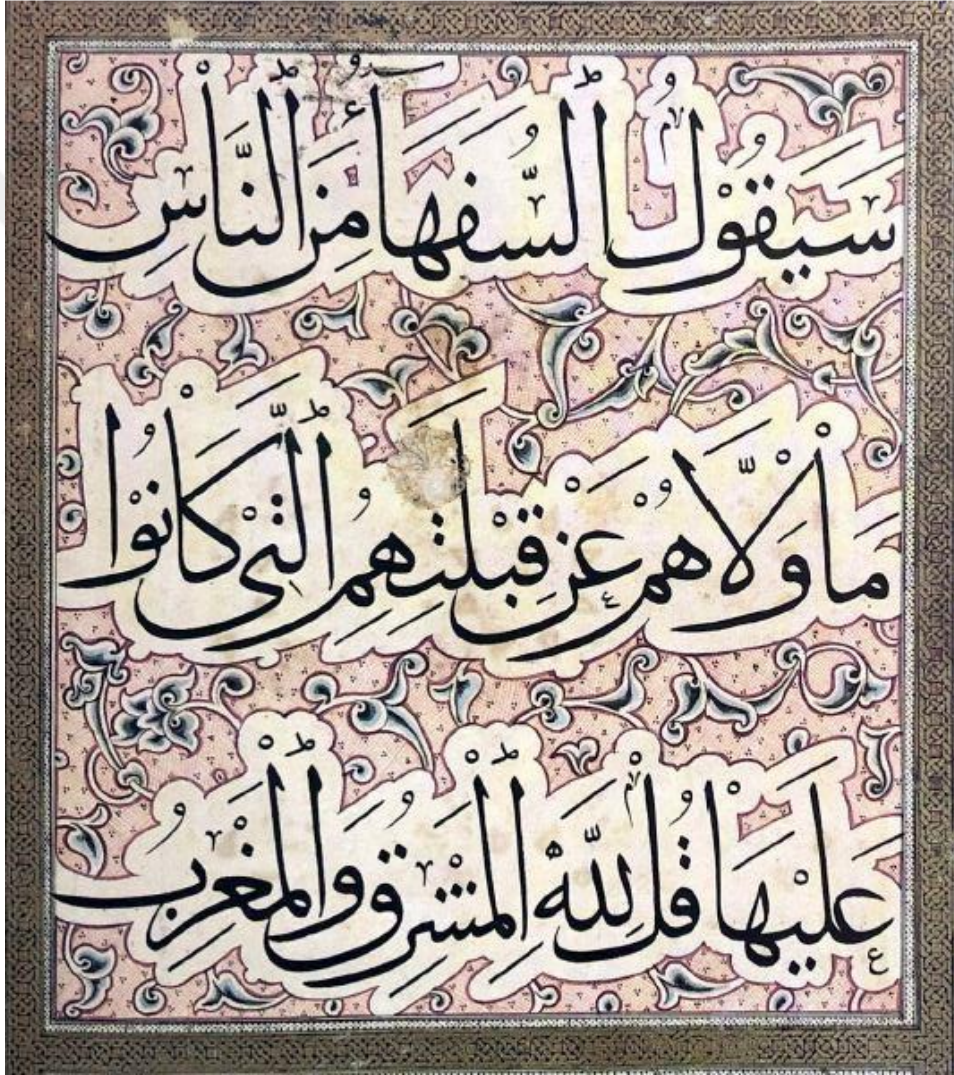 سَيَقُوْلُ ٱلسُّفَهَاۤءُ مِنَ ٱلنَّاسِ
مَاْ وَلَّاهُمْ عَنْ قِبْلَتِهِمُ ٱلَّتِىْ كَاْنُوْا
عَلَيْهَاْ قُلْ لِلّٰهِ ٱلْمَشْرِقُ وَٱلْمَغْرِبُ